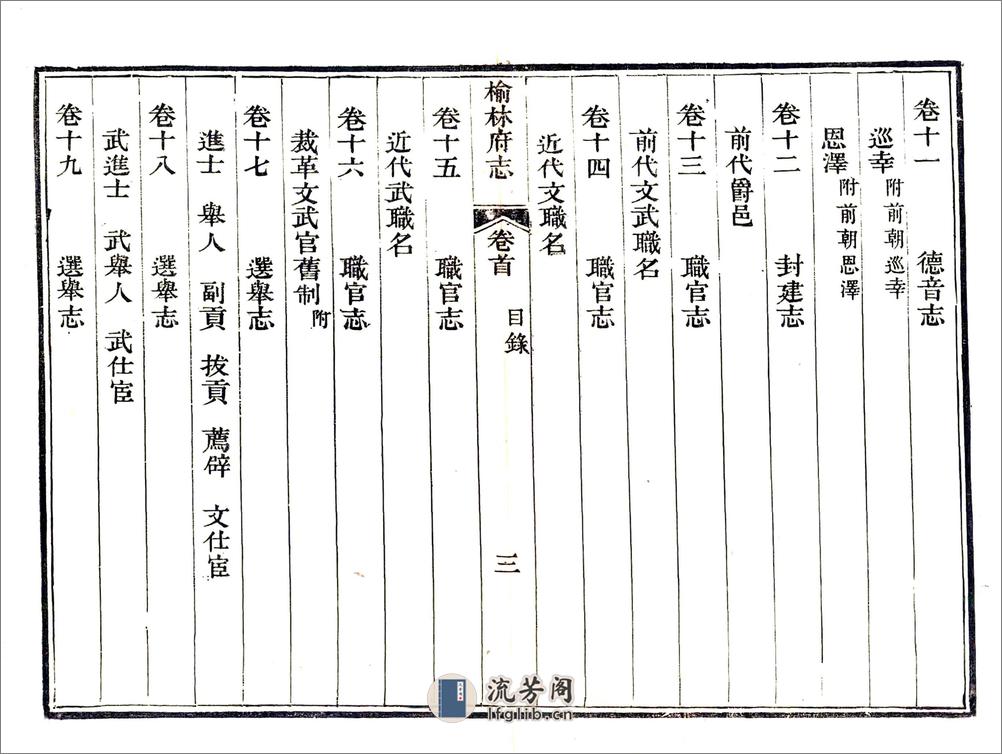 卷十一 德音志
巡幸 附前朝巡幸
恩澤 附前朝恩澤
卷十二 封建志
前代爵邑
卷十三 職官志
前代文武職名
卷十四 職官志
近代文職名
榆林府志 卷首 目錄 三
卷十五 職官志
近代武職名
卷十六 職官志
裁革文武官舊制 附
卷十七 選舉志
進士 舉人 副貢 拔貢 薦辟 文仕宦
卷十八 選舉志
武進士 武舉人 武仕宦
卷十九 選舉志
流芳阁
lfglib.cn